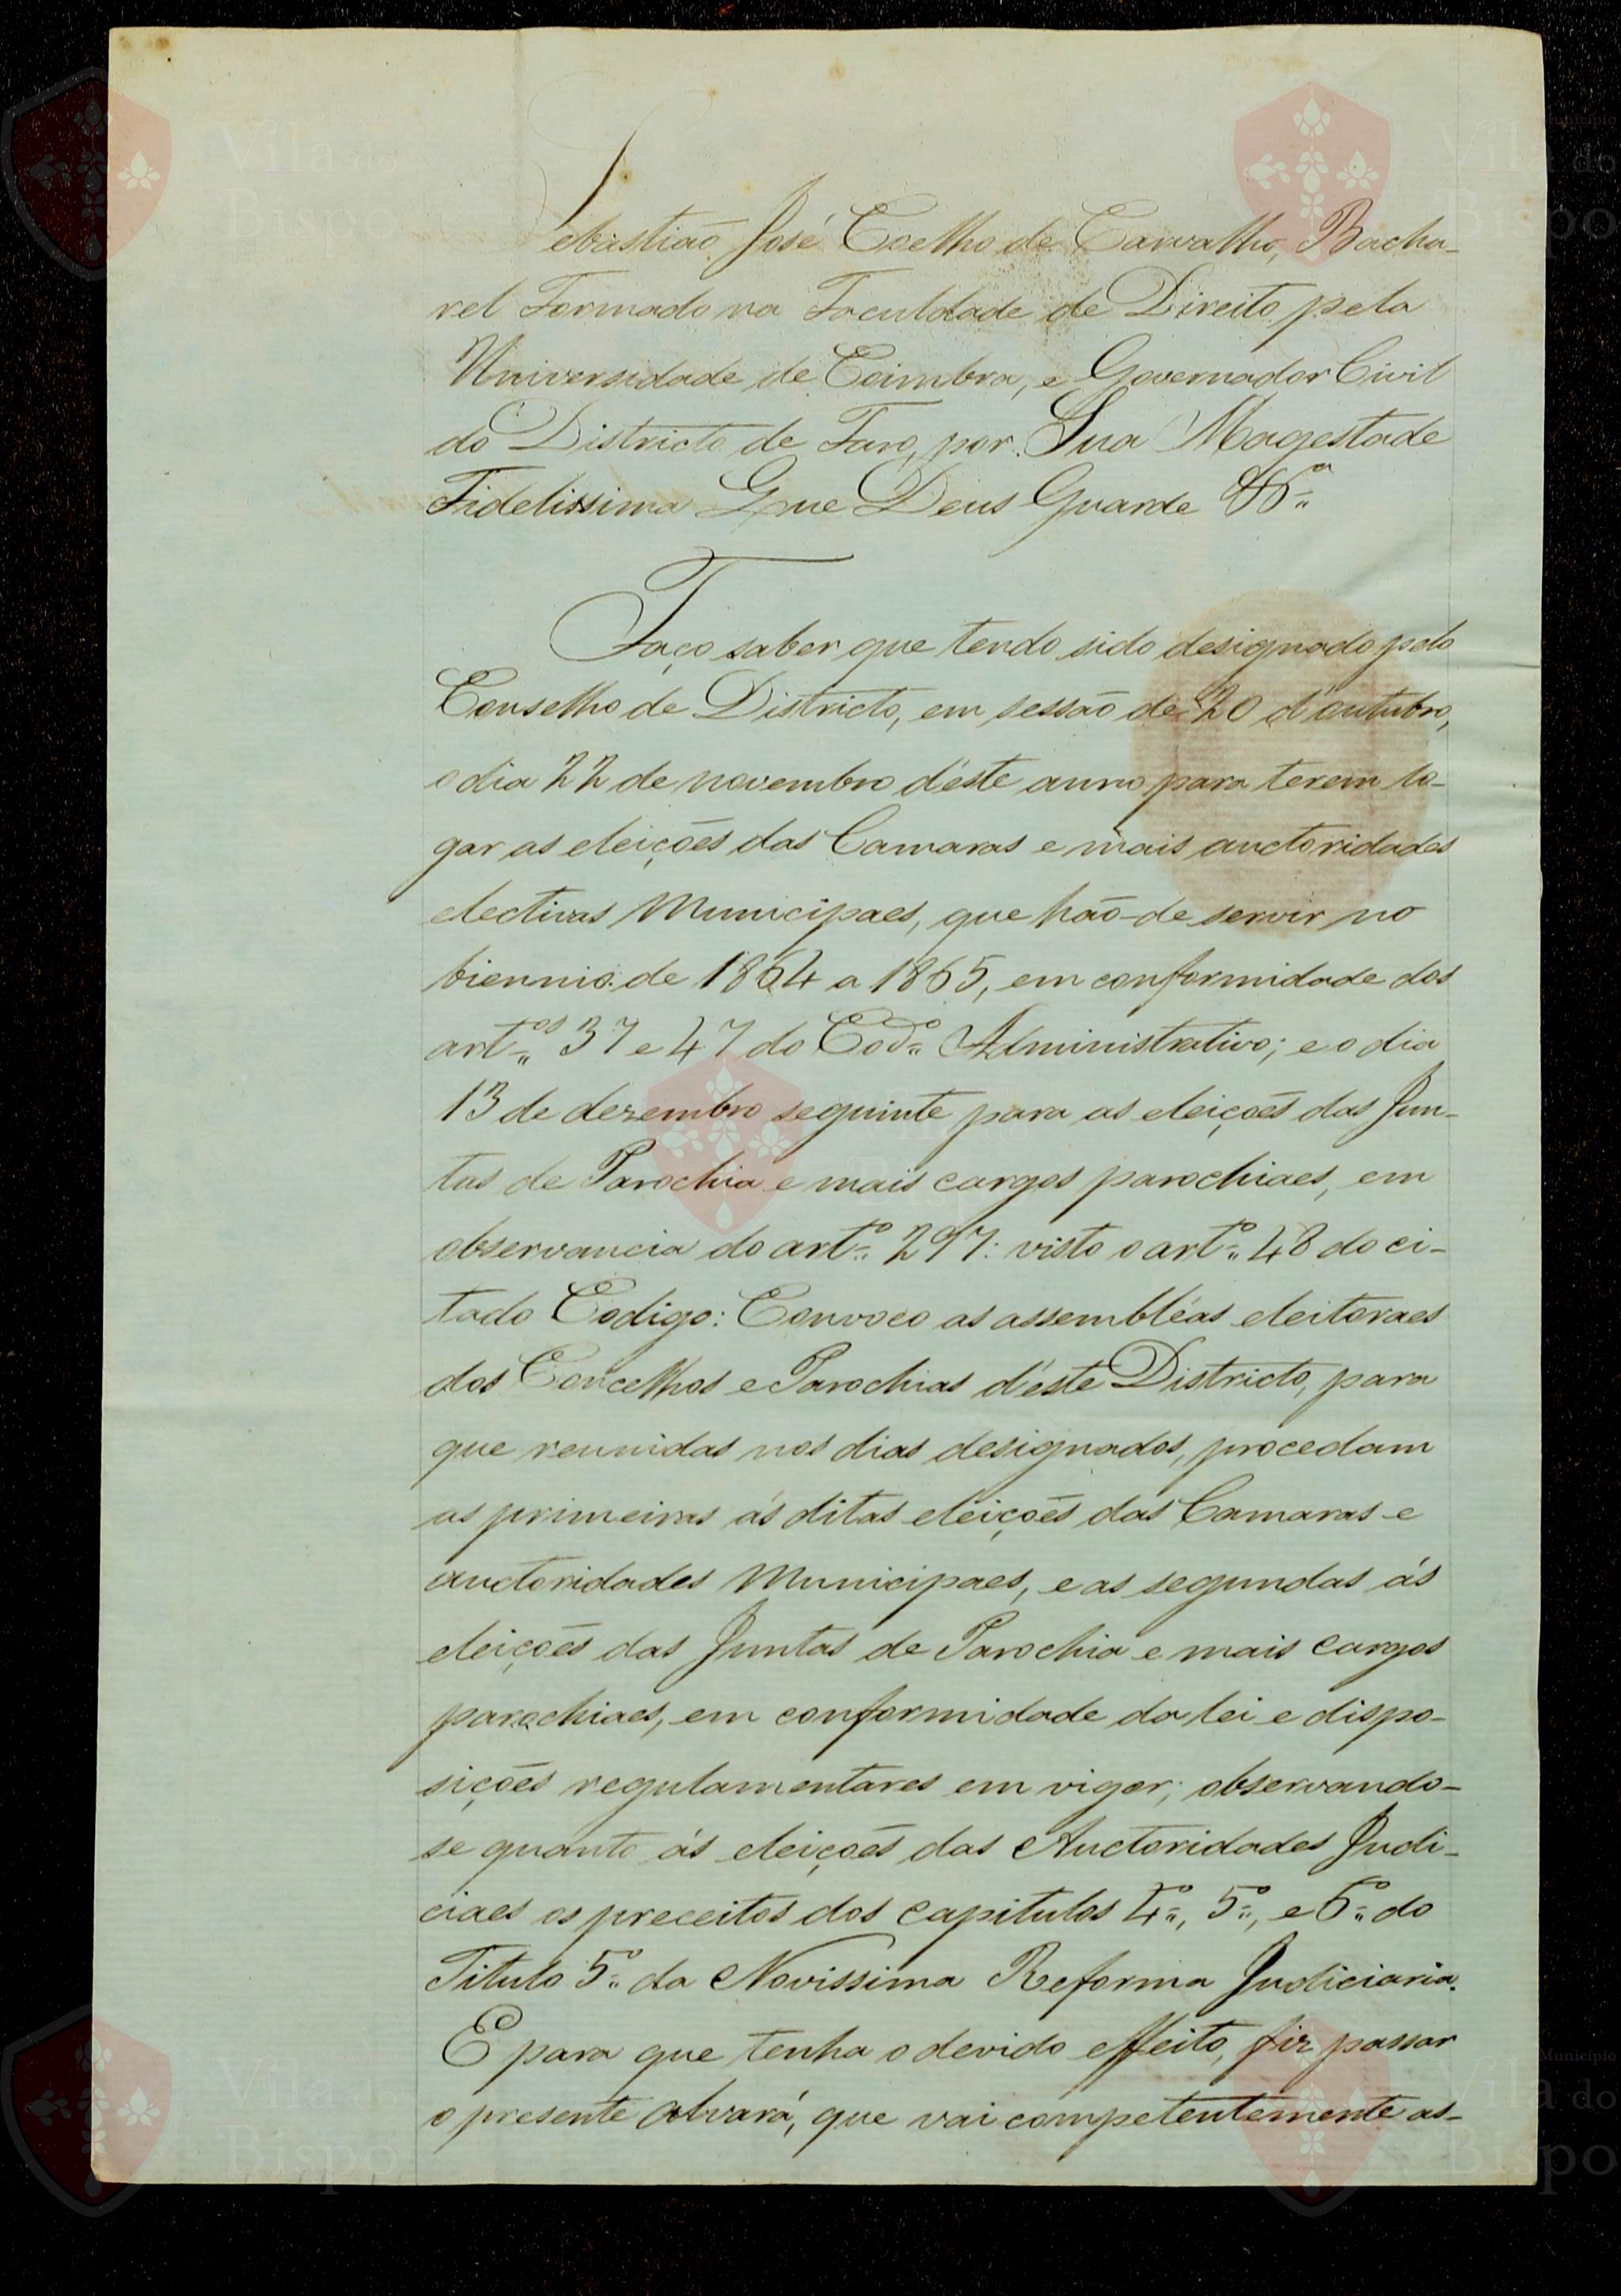 Sebastião José Coelho de Carvalho, Bacha-
rel Formado na Faculdade de Direito pela
Universidade de Coimbra, e Governador Civil
do Districto de Faro, por Sua Magestade
Fidelissima Que Deus Guarde &ª
Faço saber que tendo sido designado pelo
Conselho de Districto, em sessão de 20 d'outubro,
o dia 22 de novembro d'este anno para terem lo-
gar as eleições das Camaras e mais auctoridades
electivas Municipaes, que hão-de servir no
biennio de 1864 a 1865, em conformidade dos
artºs 37 e 47 do Codº Administrativo; e o dia
13 de dezembro seguinte para as eleições das Jun-
tas de Parochia e mais cargos parochiaes, em
observancia do artº 297: visto o artº 48 do ci-
tado Codigo: Convoco as assembléas eleitoraes
dos Concelhos e Parochias d'este Districto, para
que reunidas nos dias designados, procedam
as primeiras ás ditas eleições das Camaras e
auctoridades Municipaes, e as segundas ás
eleições das Juntas de Parochia e mais cargos
parochiaes, em conformidade da lei e dispo-
sições regulamentares em vigor; observando-
se quanto ás eleições das Auctoridades Judi-
ciaes os preceitos dos capitulos 4º, 5º, e 6º do
Titulo 5º da Novissima Reforma Judiciaria.
E para que tenha o devido effeito, fiz passar
o presente alvará, que vai competentemente as-
Vila do
Bispo
Município
Vila do
Bispo
Vila do
Bispo
Vila do
Bispo
Município
Vila do
Bispo